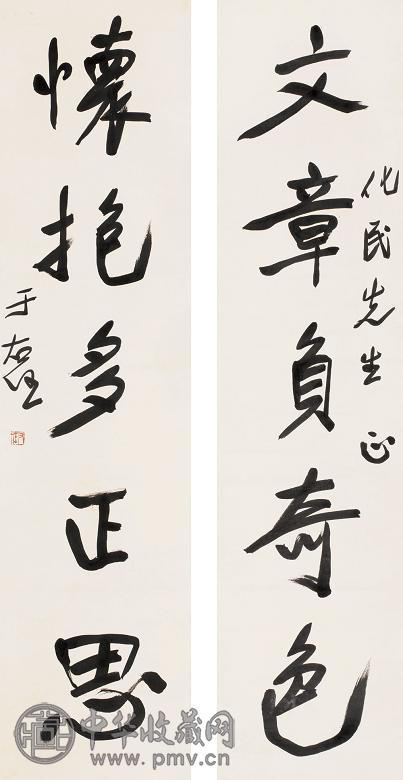 文章負奇色
化民先生 正
懷抱多正思
于右任
中华收藏网
www.pmv.cn